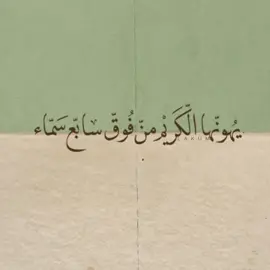 يهونّها الّكَريْم مِنّ فُوقّ سابّع سَمّاء